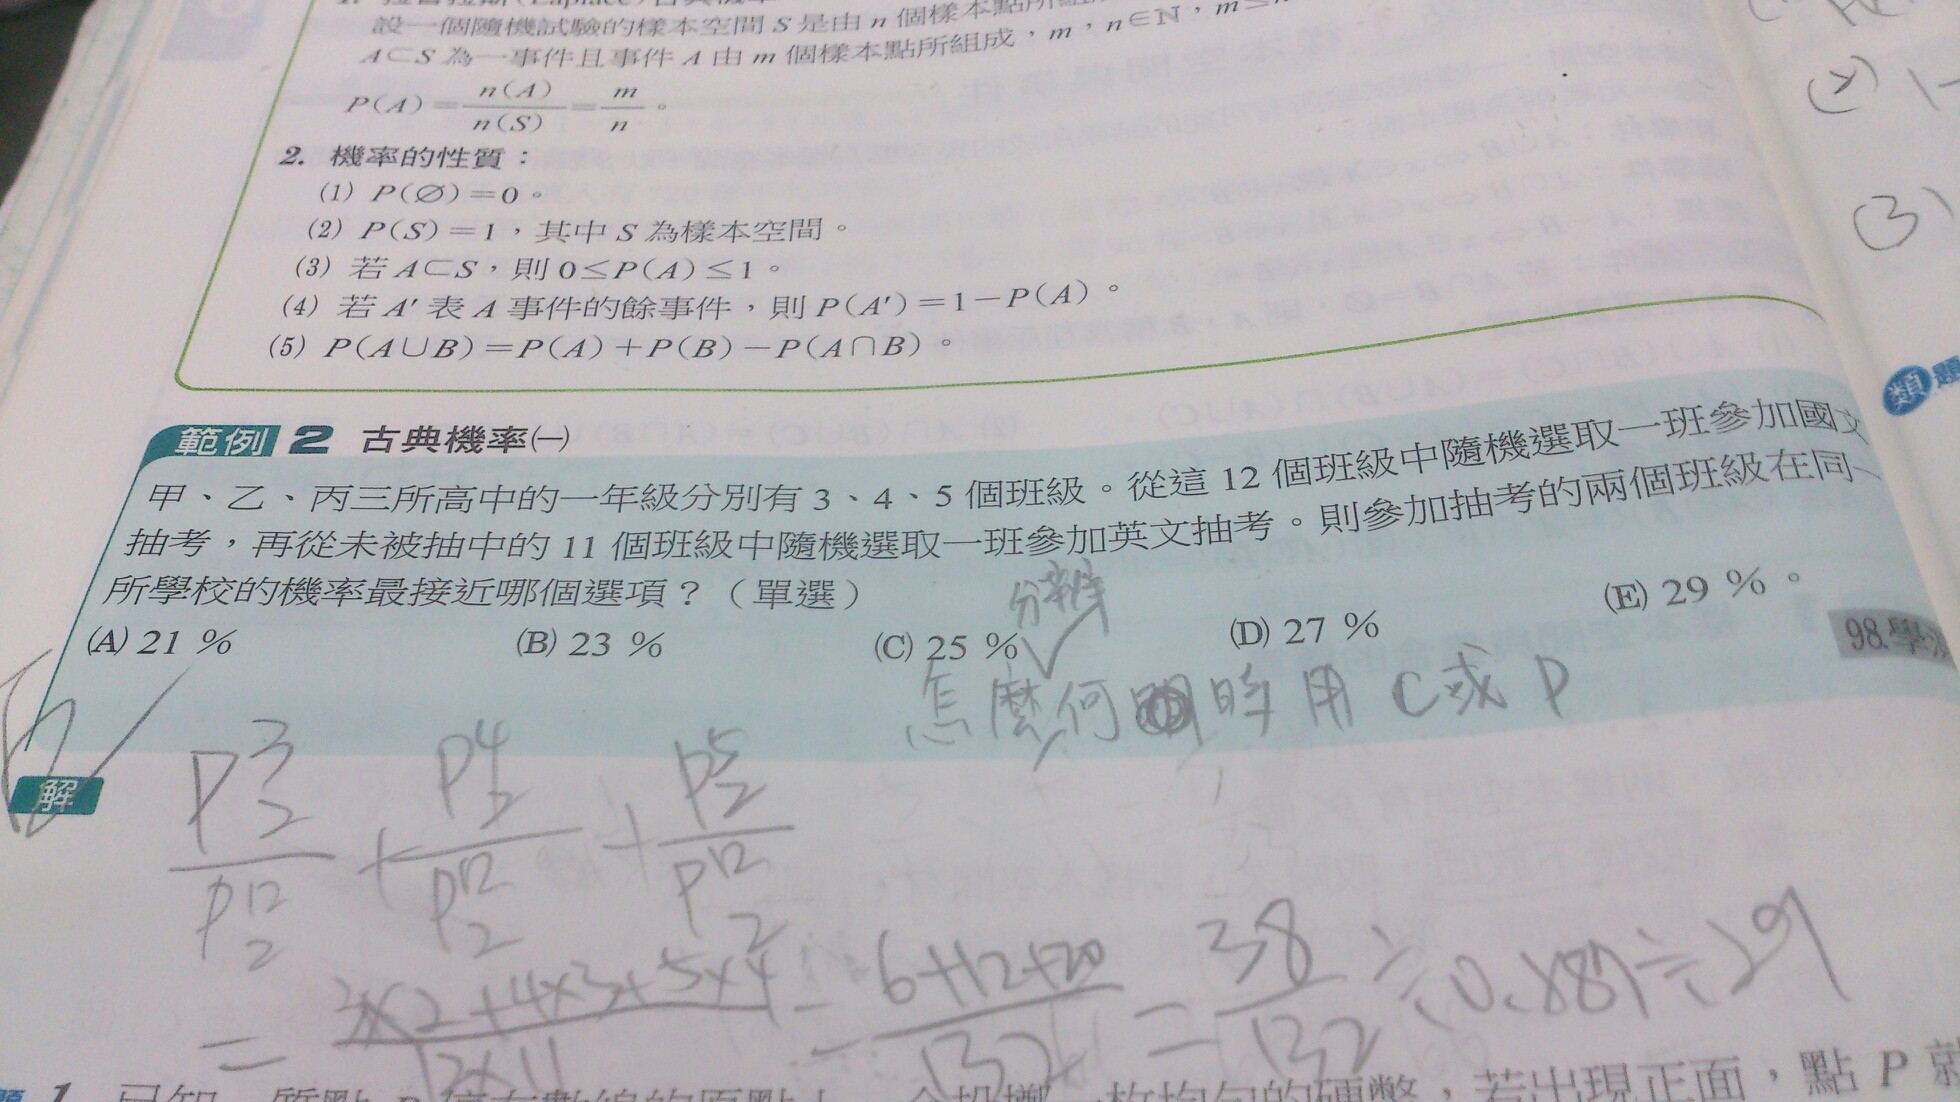 設一個隨機試驗的樣本空間 S 是由 n 個樣本點所組
A⊂S 為一事件且事件 A 由 m 個樣本點所組成，m，n∈N，m≤n
P(A)=n(A)/n(S)=m/n。
2. 機率的性質：
(1) P(∅)=0。
(2) P(S)=1，其中 S 為樣本空間。
(3) 若 A⊂S，則 0≤P(A)≤1。
(4) 若 A′ 表 A 事件的餘事件，則 P(A′)=1-P(A)。
(5) P(A∪B)=P(A)+P(B)-P(A∩B)。
範例 2 古典機率(一)
甲、乙、丙三所高中的一年級分別有 3、4、5 個班級。從這 12 個班級中隨機選取一班參加國文
抽考，再從未被抽中的 11 個班級中隨機選取一班參加英文抽考。則參加抽考的兩個班級在同一
所學校的機率最接近哪個選項？（單選）
(A) 21 % (B) 23 % (C) 25 % (D) 27 % (E) 29 %。
98.學測
分辨
怎麼何時用 C 或 P
解
P³₂/P¹²₂ + P⁴₂/P¹²₂ + P⁵₂/P¹²₂
= 3×2+4×3+5×4/12×11 = 6+12+20/132 = 38/132 ≒ 0.287 ≒ 29
(3)
類題